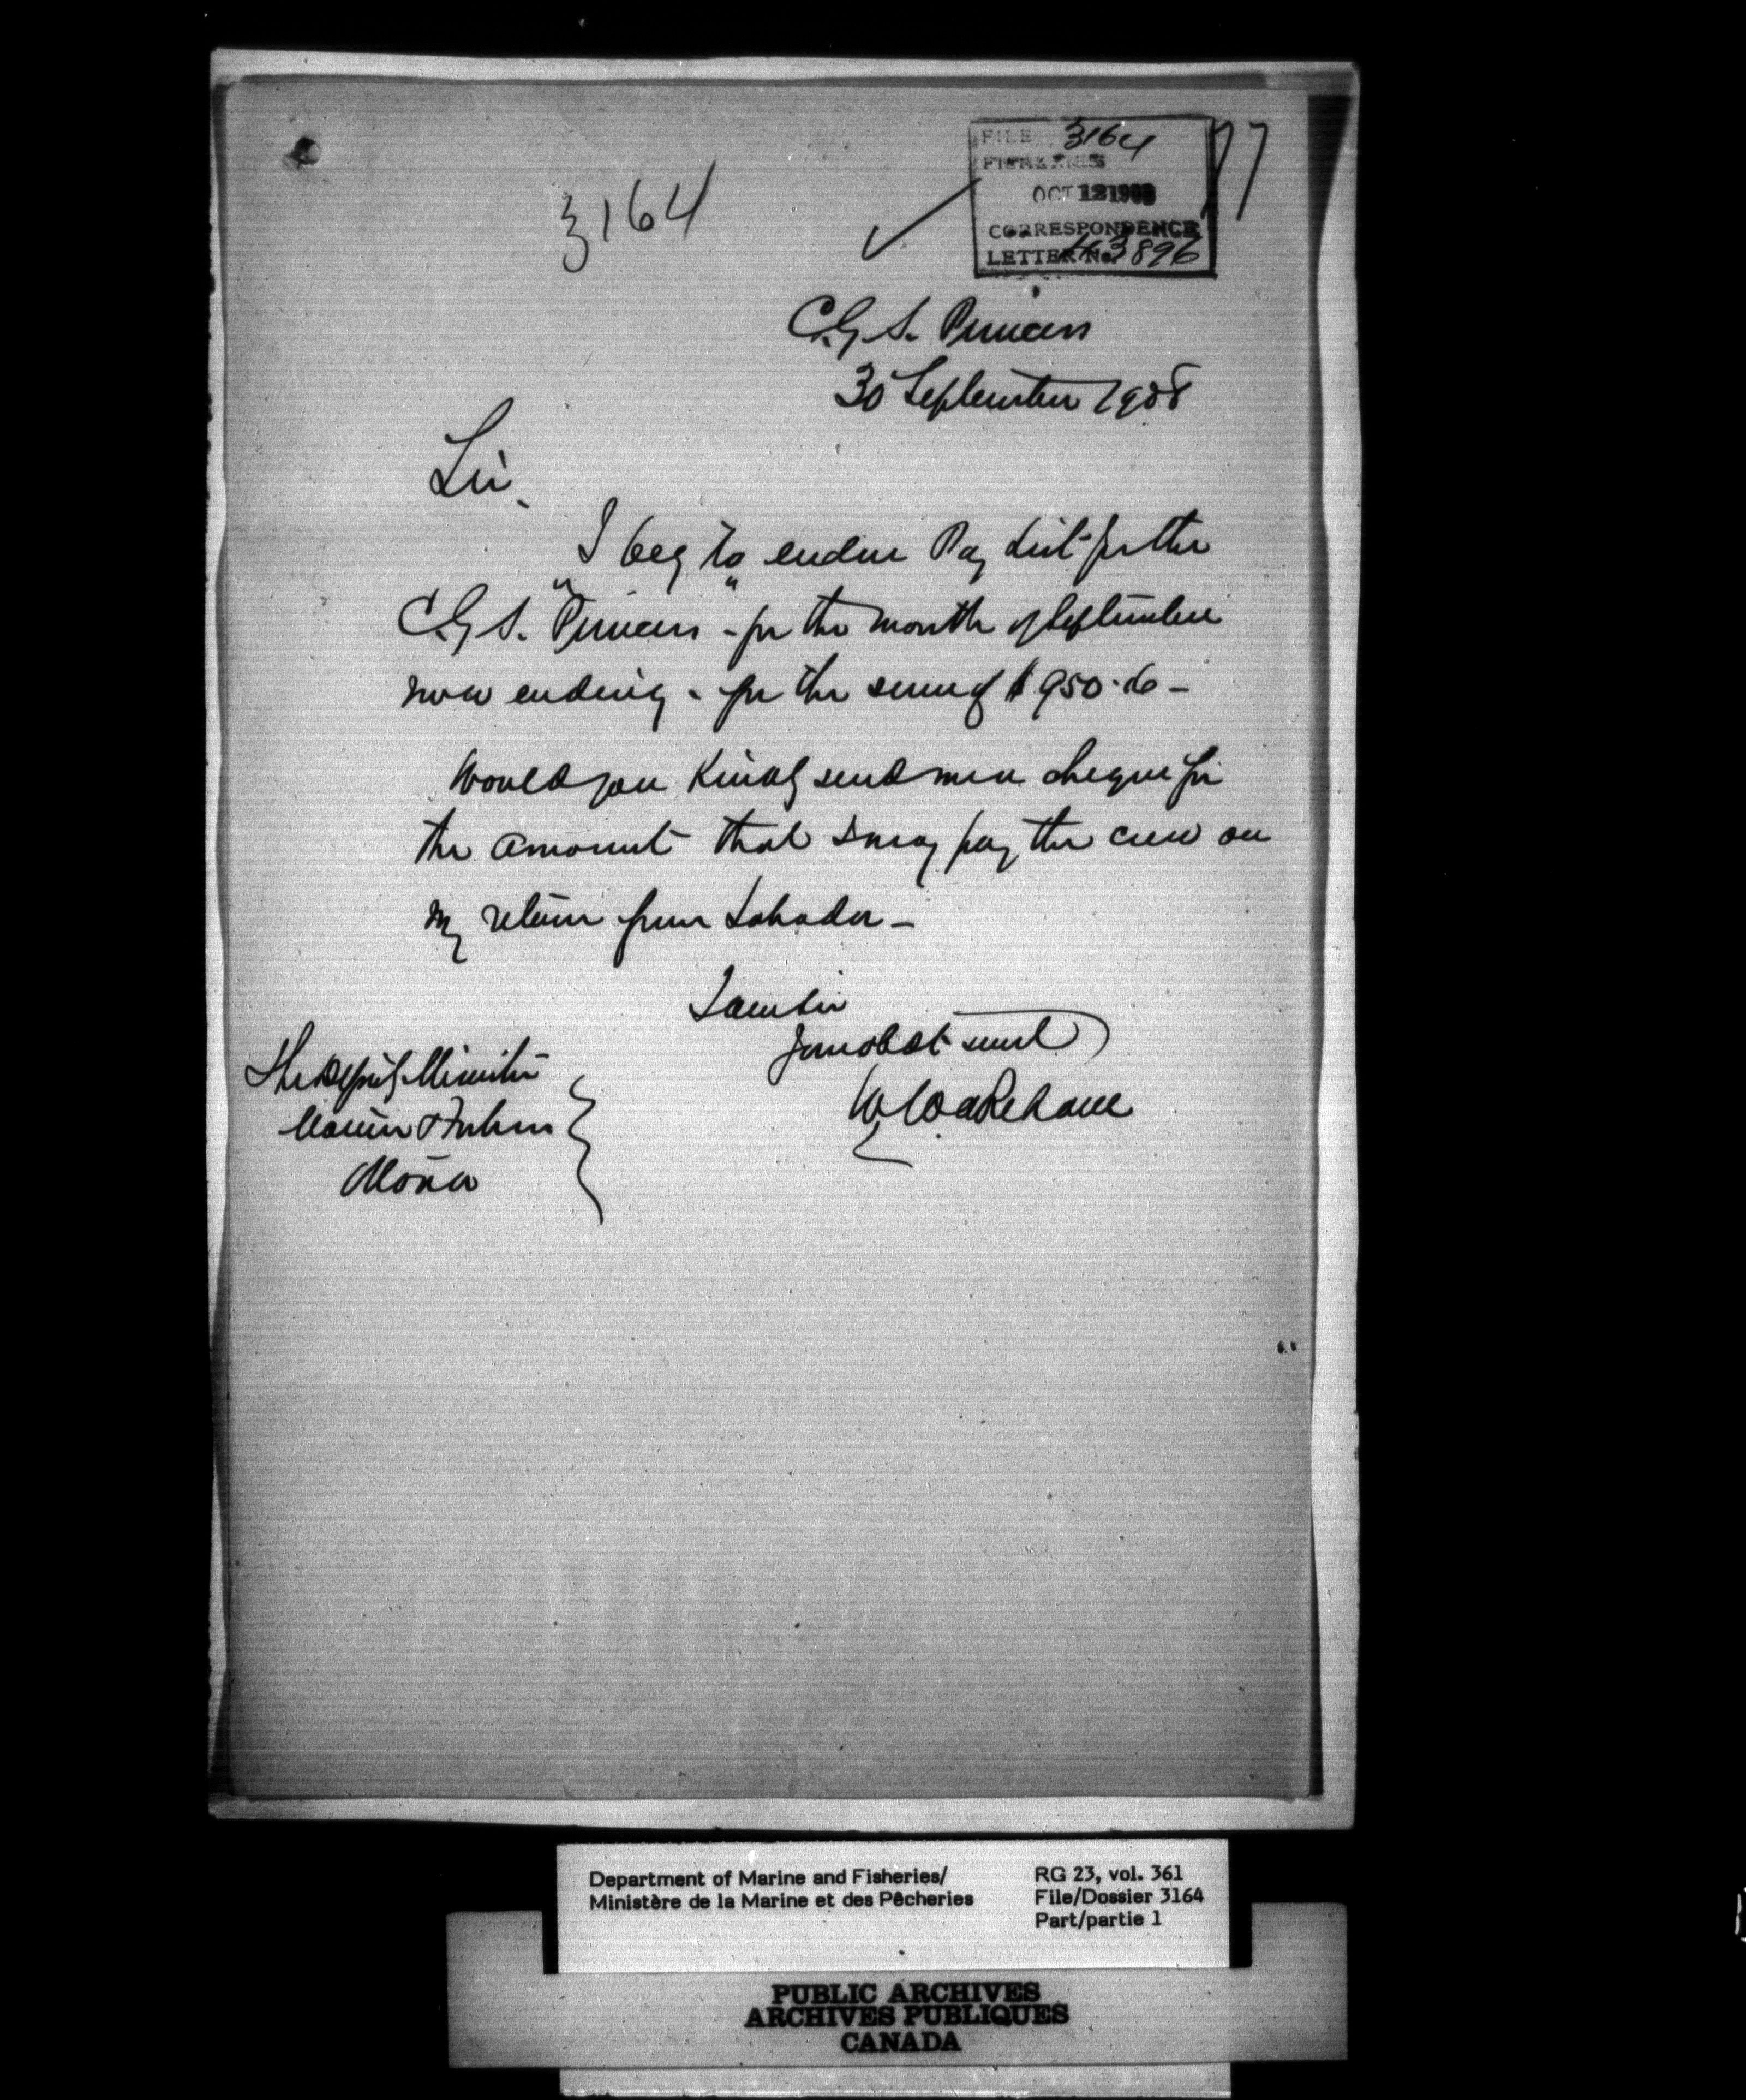 FILE 3164
FISHERIES
77
OCT 12 1908
3164
CORRESPONDENCE
LETTER No. 43896
C.G.S. Princess
30 September 1908
Sir,
I beg to enclose Pay List for the
C.G.S. "Princess" - for the month of September
now ending - for the sum of $950.
Would you kindly send me a cheque for
the amount that I may pay the crew on
my return from Labrador -
I am Sir
Your obdt servt
W Wakeham
The Deputy Minister
Marine & Fisheries
Ottawa
Department of Marine and Fisheries/
Ministère de la Marine et des Pêcheries
RG 23, vol. 361
File/Dossier 3164
Part/partie 1
PUBLIC ARCHIVES
ARCHIVES PUBLIQUES
CANADA